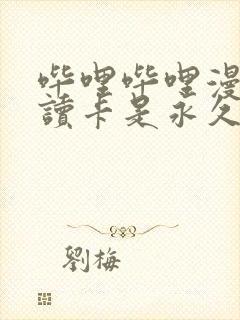 哔哩哔哩漫
讀卡是永久
劉梅